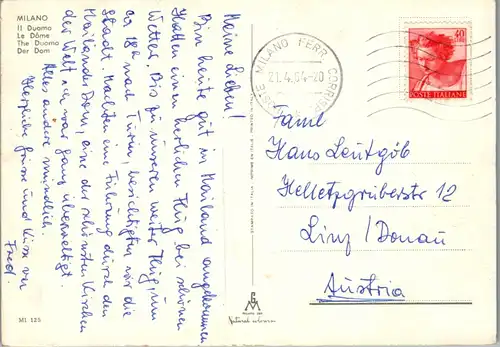 MILANO
Il Duomo
Le Dôme
The Duomo
Der Dom
Meine Lieben!
Bin heute gut in Mailand angekommen
Hatten einen herlichen Flug bei schönen
Wetter. Bis zu unseren weiter Flug, um
ca 18ʰ nach Turin, besichtigten wir die
Stadt. Machten eine Führung durch den
Mailänder Dom, eine der schönsten Kirchen
der Welt. Ich war ganz überweltigt.
Alles andere mündlich.
Herzliche Grüße und Küsse von
Fred.
MI 125
MILANO FERR. CORRISP.
21.4.64-20
40
POSTE ITALIANE
Faml
Hans Leutgöb
Helletzgruberstr 12
Linz/Donau
Austria
Natural colorcrom